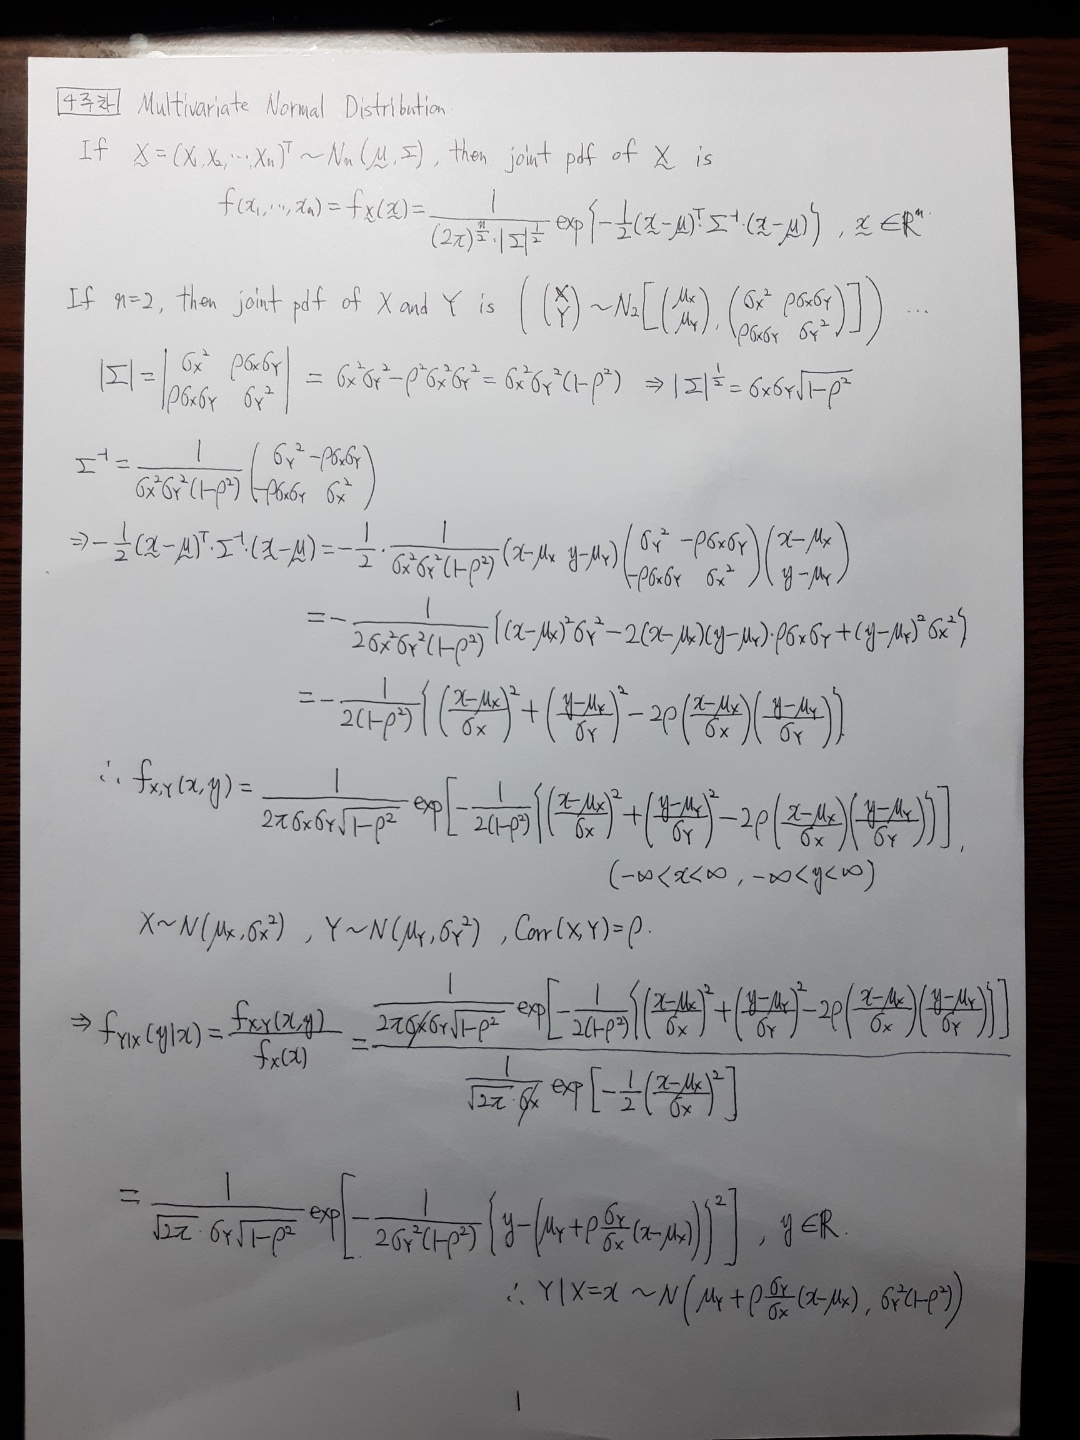 4주차 Multivariate Normal Distribution.
If X̰=(X₁,X₂,⋯,Xₙ)ᵀ ~ Nₙ(μ̰,Σ), then joint pdf of X̰ is
f(x₁,⋯,xₙ) = f_X̰(x̰) = 1/((2π)^(n/2)·|Σ|^(1/2)) exp{-1/2(x̰-μ̰)ᵀ·Σ⁻¹·(x̰-μ̰)}, x̰ ∈ ℝⁿ.
If n=2, then joint pdf of X and Y is ( (X Y) ~ N₂[(μ_X μ_Y), (σ_X² ρσ_Xσ_Y ρσ_Xσ_Y σ_Y²)] ) ⋯
|Σ| = |σ_X² ρσ_Xσ_Y ρσ_Xσ_Y σ_Y²| = σ_X²σ_Y²-ρ²σ_X²σ_Y² = σ_X²σ_Y²(1-ρ²) ⇒ |Σ|^(1/2) = σ_Xσ_Y√(1-ρ²)
Σ⁻¹ = 1/(σ_X²σ_Y²(1-ρ²)) (σ_Y² -ρσ_Xσ_Y -ρσ_Xσ_Y σ_X²)
⇒ -1/2(x̰-μ̰)ᵀ·Σ⁻¹·(x̰-μ̰) = -1/2 · 1/(σ_X²σ_Y²(1-ρ²)) (x-μ_X y-μ_Y) (σ_Y² -ρσ_Xσ_Y -ρσ_Xσ_Y σ_X²) (x-μ_X y-μ_Y)
= -1/(2σ_X²σ_Y²(1-ρ²)) {(x-μ_X)²σ_Y² - 2(x-μ_X)(y-μ_Y)·ρσ_Xσ_Y + (y-μ_Y)²σ_X²}
= -1/(2(1-ρ²)) {((x-μ_X)/σ_X)² + ((y-μ_Y)/σ_Y)² - 2ρ((x-μ_X)/σ_X)((y-μ_Y)/σ_Y)}
∴ f_X,Y(x,y) = 1/(2πσ_Xσ_Y√(1-ρ²)) exp[-1/(2(1-ρ²)) {((x-μ_X)/σ_X)² + ((y-μ_Y)/σ_Y)² - 2ρ((x-μ_X)/σ_X)((y-μ_Y)/σ_Y)}],
(-∞<x<∞, -∞<y<∞)
X~N(μ_X,σ_X²), Y~N(μ_Y,σ_Y²), Corr(X,Y)=ρ.
⇒ f_Y|X(y|x) = f_X,Y(x,y)/f_X(x) = 1/(2πσ_Xσ_Y√(1-ρ²)) exp[-1/(2(1-ρ²)) {((x-μ_X)/σ_X)² + ((y-μ_Y)/σ_Y)² - 2ρ((x-μ_X)/σ_X)((y-μ_Y)/σ_Y)}]
1/(√2π·σ_X) exp[-1/2((x-μ_X)/σ_X)²]
= 1/(√2π·σ_Y√(1-ρ²)) exp[-1/(2σ_Y²(1-ρ²)) {y-(μ_Y+ρ(σ_Y/σ_X)(x-μ_X))}²], y∈ℝ.
∴ Y|X=x ~ N(μ_Y+ρ(σ_Y/σ_X)(x-μ_X), σ_Y²(1-ρ²))
1